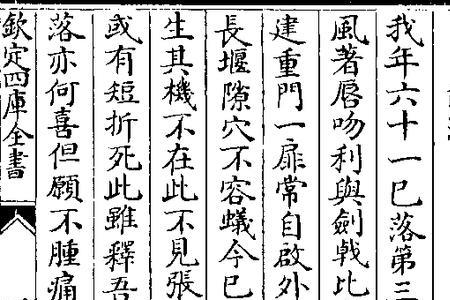 我年六十一已落第三
風著唇吻利與劍㦸比
建重門一扉常自啟外
長堰隙穴不容蟻今已
生其機不在此不見張
或有短折死此雖釋吾
落亦何喜但願不腫痛
欽定四庫全書